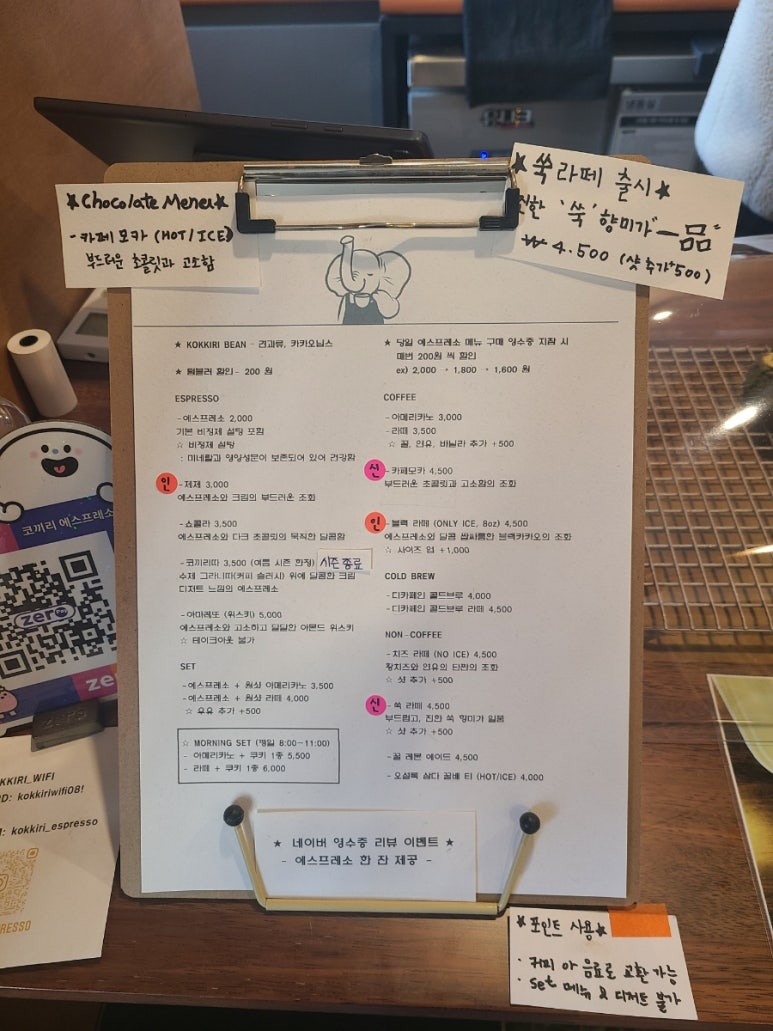 ★Chocolate Menu★
-카페 모카 (HOT/ICE)
부드러운 초콜릿과 고소함
★쑥라떼 출시★
진한 '쑥' 향미가 "一品"
₩ 4.500 (샷 추가+500)
★ KOKKIRI BEAN - 견과류, 카카오닙스
★ 텀블러 할인 - 200 원
★ 당일 에스프레소 메뉴 구매 영수증 지참 시
매번 200원 씩 할인
ex) 2,000 → 1,800 → 1,600 원
ESPRESSO
- 에스프레소 2,000
기본 비정제 설탕 포함
☆ 비정제 설탕
: 미네랄과 영양성분이 보존되어 있어 건강함
인
- 제제 3,000
에스프레소와 크림의 부드러운 조화
- 쇼콜라 3,500
에스프레소와 다크 초콜릿의 묵직한 달콤함
- 코끼리따 3,500 (여름 시즌 한정) 시즌 종료
수제 그라니따(커피 슬러시) 위에 달콤한 크림
디저트 느낌의 에스프레소
- 아마레또 (위스키) 5,000
에스프레소와 고소하고 달달한 아몬드 위스키
☆ 테이크아웃 불가
SET
- 에스프레소 + 원샷 아메리카노 3,500
- 에스프레소 + 원샷 라떼 4,000
☆ 우유 추가 +500
☆ MORNING SET (평일 8:00~11:00)
- 아메리카노 + 쿠키 1종 5,500
- 라떼 + 쿠키 1종 6,000
COFFEE
- 아메리카노 3,000
- 라떼 3,500
☆ 꿀, 연유, 바닐라 추가 +500
신
- 카페모카 4,500
부드러운 초콜릿과 고소함의 조화
인
- 블랙 라떼 (ONLY ICE, 8oz) 4,500
에스프레소와 달콤 쌉싸름한 블랙카카오의 조화
☆ 사이즈 업 +1,000
COLD BREW
- 디카페인 콜드브루 4,000
- 디카페인 콜드브루 라떼 4,500
NON-COFFEE
- 치즈 라떼 (NO ICE) 4,500
황치즈와 연유의 단짠의 조화
☆ 샷 추가 +500
신
- 쑥 라떼 4,500
부드럽고, 진한 쑥 향미가 일품
☆ 샷 추가 +500
- 꿀 레몬 에이드 4,500
- 오설록 삼다 꿀배 티 (HOT/ICE) 4,000
★ 네이버 영수증 리뷰 이벤트 ★
- 에스프레소 한 잔 제공 -
★포인트 사용★
· 커피 and 음료로 교환 가능
· set 메뉴 & 디저트 불가
코끼리 에스프레소
zero
KKIRI_WIFI
D: kokkiriwifi08!
: kokkiri_espresso
RESSO
냉동실